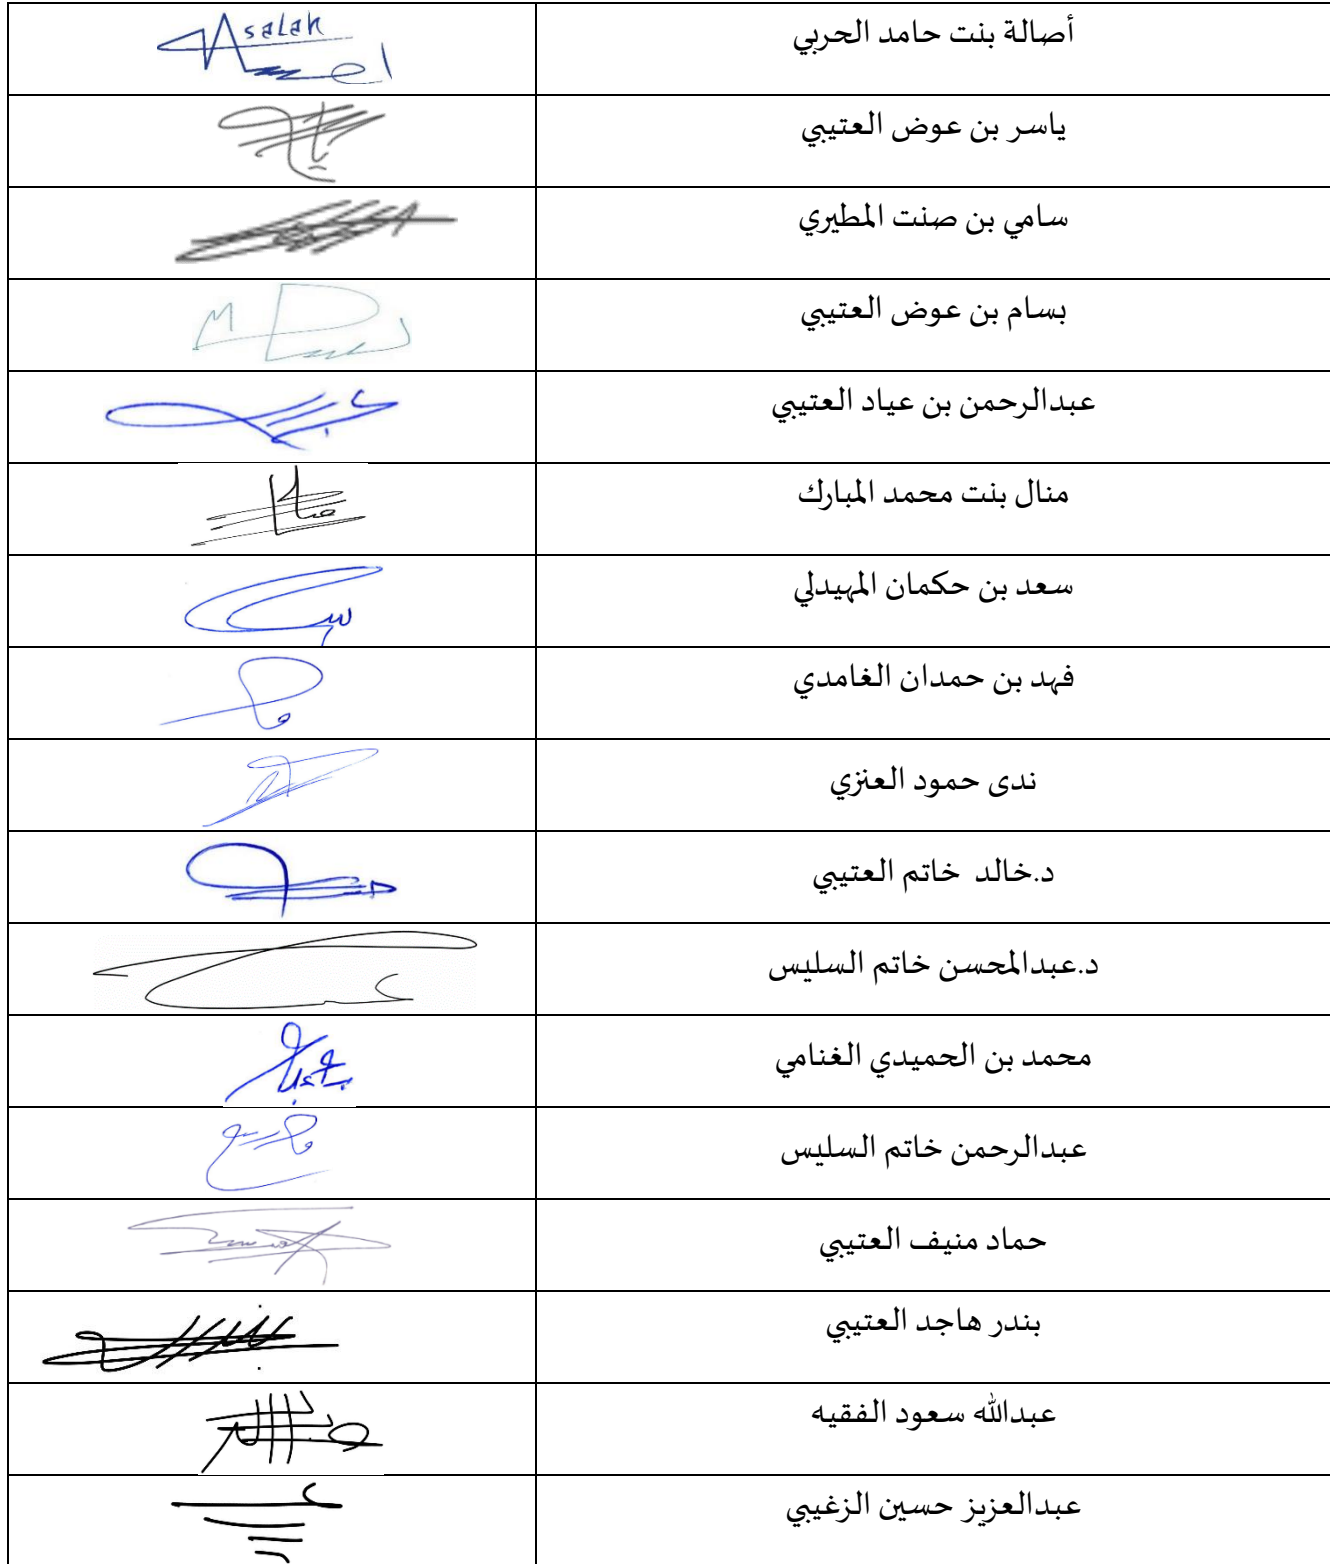 أصالة بنت حامد الحربي
Asalah
ياسر بن عوض العتيبي
سامي بن صنت المطيري
بسام بن عوض العتيبي
عبدالرحمن بن عياد العتيبي
منال بنت محمد المبارك
سعد بن حكمان المهيدلي
فهد بن حمدان الغامدي
ندى حمود العنزي
د.خالد خاتم العتيبي
د.عبدالمحسن خاتم السليس
محمد بن الحميدي الغنامي
عبدالرحمن خاتم السليس
حماد منيف العتيبي
بندر هاجد العتيبي
عبدالله سعود الفقيه
عبدالعزيز حسين الزغيبي